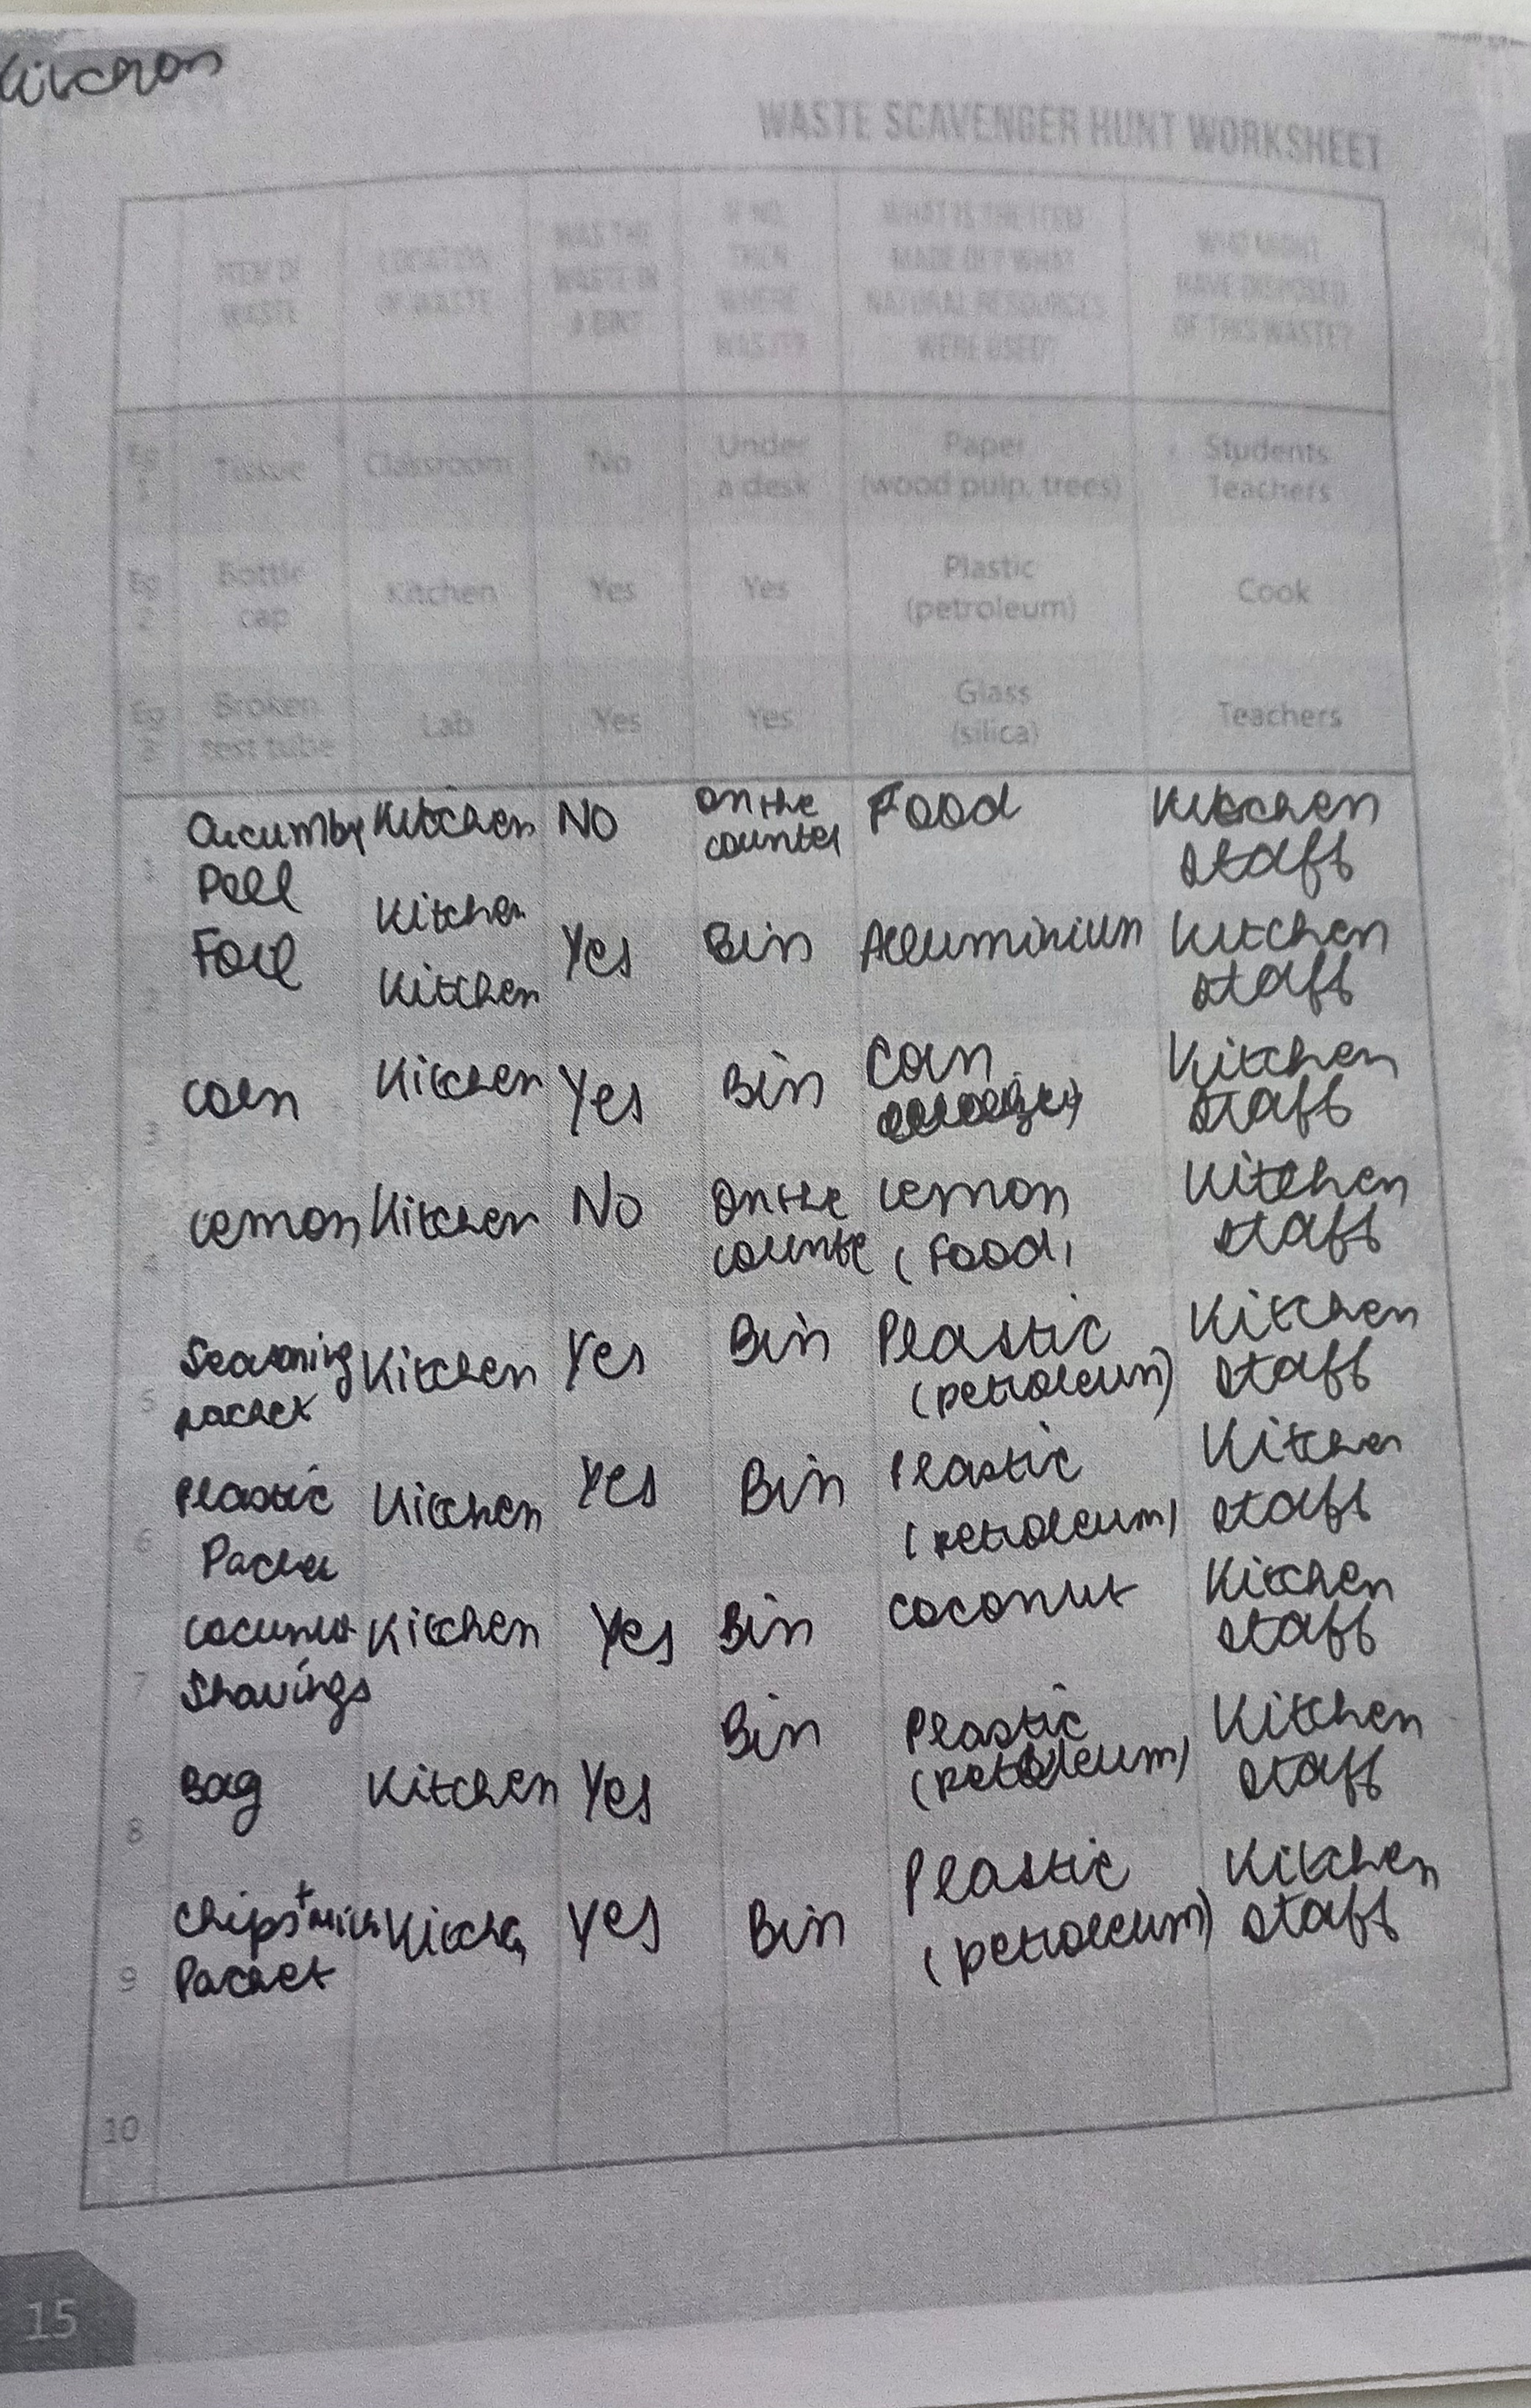 Kitchen
WASTE SCAVENGER HUNT WORKSHEET
ITEM OF WASTE LOCATION OF WASTE WAS THE WASTE IN A BIN? IF NO, THEN WHERE WAS IT? WHAT IS THE ITEM MADE OF? WHAT NATURAL RESOURCES WERE USED? WHAT MIGHT HAVE DISPOSED OF THIS WASTE?
Eg 1 Tissue Classroom No Under a desk Paper (wood pulp, trees) Students Teachers
Eg 2 Bottle cap Kitchen Yes Yes Plastic (petroleum) Cook
Eg 3 Broken test tube Lab Yes Yes Glass (silica) Teachers
1 Kitchen No On the counter Food Kitchen staff
Kitchen
2 Foil Kitchen Yes Bin Alluminium Kitchen staff
3 Corn Kitchen Yes Bin Corn Kitchen staff
4 Lemon Kitchen No On the Lemon (Food) Kitchen staff
5 Seasoning packet Kitchen Yes Bin Plastic (petroleum) Kitchen staff
6 Plastic Kitchen Yes Bin Plastic (petroleum) Kitchen staff
7 Shavings Kitchen Yes Bin coconut Kitchen staff
8 Bag Kitchen Yes Bin Plastic (petroleum) Kitchen staff
9 Chips + Packet Yes Bin Plastic (petroleum) Kitchen staff
10
15